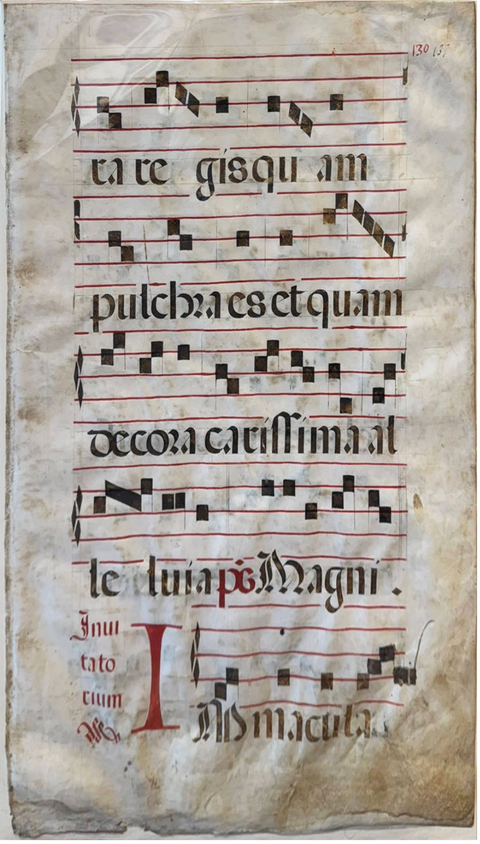 130
ra re gis qu am
pulchra es et quam
decora carissima al
le luia ps Magni.
Invi
tato
rium
I Mmacula